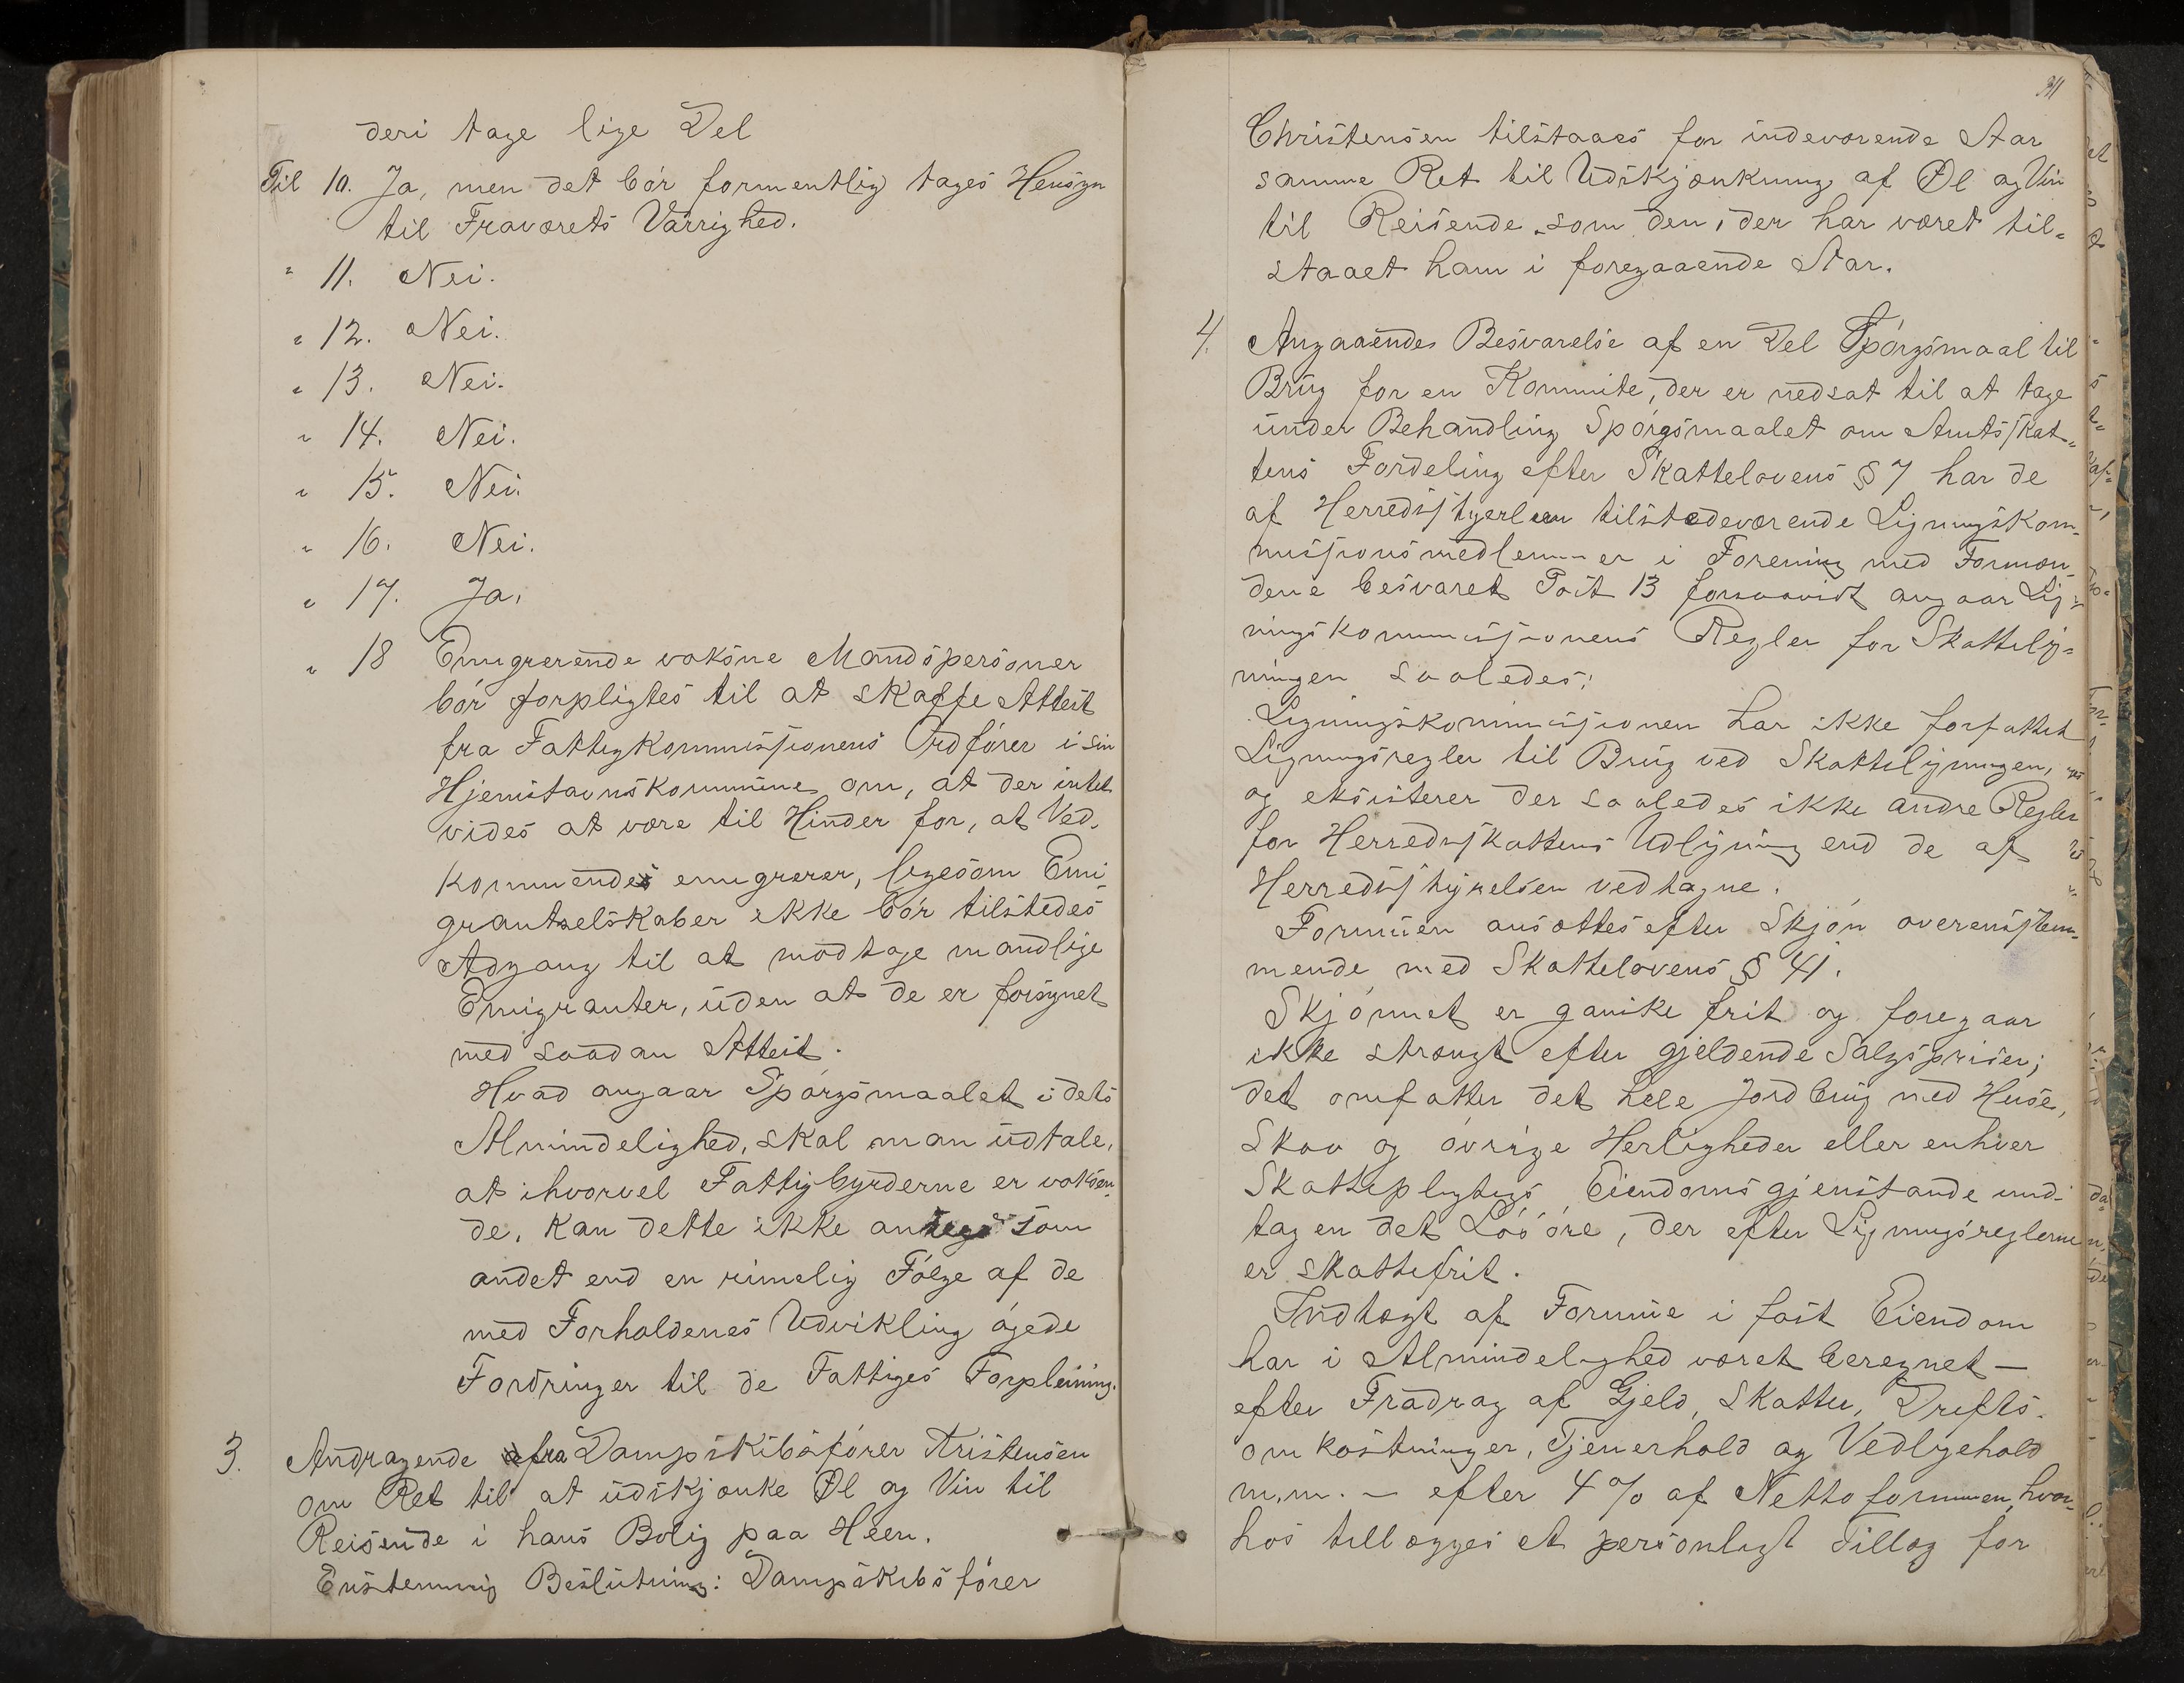 deri tage lige Del
Til 10. Ja, men det bör formentlig tages Hensyn
til Fraværets Varrighed.
" 11. Nei.
" 12. Nei.
" 13. Nei.
" 14. Nei.
" 15. Nei.
" 16. Nei.
" 17. Ja.
" 18 Emigrerende voksne Mandspersoner
bör forpligtes til at skaffe Attest
fra Fattigkommissionens Ordförer i sin
Hjemstavnskommune om, at der intet
vides at være til Hinder for, at Ved-
kommende emigrerer, ligesom Emi-
grantselskaber ikke bör tilstedes
Adgang til at modtage mandlige
Emigranter, uden at de er forsynet
med saadan Attest.
Hvad angaar Spörgsmaalet i dets
Almindelighed, skal man udtale,
at ihvorvel Fattigbyrderne er voksen-
de, kan dette ikke ansees som
andet end en rimelig Fölge af de
med Forholdenes Udvikling ögede
Fordringer til de Fattiges Forpleining.
3. Andragende fra Dampskibsförer Kristensen
om Ret til at udskjænke Øl og Vin til
Reisende i hans Bolig paa Heen.
Enstemmig Beslutning: Dampskibsförer
311
Christensen tilstaaes for indeværende Aar
samme Ret til Udskjænkning af Øl og Vin
til Reisende som den, der har været til-
staaet ham i foregaaende Aar.
4. Angaaende Besvarelse af en Del Spörgsmaal til
Brug for en Kommite, der er nedsat til at tage
under Behandling Spörgsmaalet om Amtsskat-
tens Fordeling efter Skattelovens § 7 har de
af Herredsstyrelsen tilstedeværende Ligningskom-
missionsmedlemmer i Forening med Formæn-
dene besvaret Post 13 forsaavidt angaar Lig-
ningskommissionens Regler for Skattelig-
ningen saaledes:
Ligningskommissionen har ikke forfattet
Ligningsregler til Brug ved Skatteligningen,
og eksisterer der saaledes ikke andre Regler
for Herredsskattens Udligning end de af
Herredsstyrelsen vedtagne.
Formuen ansættes efter Skjön overensstem-
mende med Skattelovens § 41.
Skjönnet er ganske frit og foregaar
ikke strængt efter gjeldende Salgspriser;
det omfatter det hele Jordbrug med Huse,
Skov og övrige Herligheder eller enhver
Skattepligtigs Eiendomsgjenstande und-
tagen det Lösöre, der efter Ligningsreglerne
er skattefrit.
Indtægt af Formue i fast Eiendom
har i Almindelighed været beregnet —
efter Fradrag af Gjeld, Skatter, Drifts-
omkostninger, Tjenerhold og Vedligehold
m.m. — efter 4 % af Nettoformuen, hvor-
hos tillægges et personligt Tillæg for